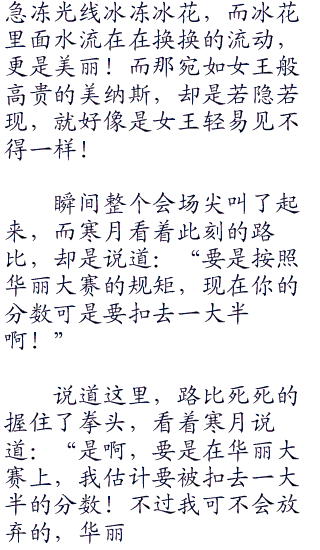 急冻光线冰冻冰花，而冰花
里面水流在在换换的流动，
更是美丽！而那宛如女王般
高贵的美纳斯，却是若隐若
现，就好像是女王轻易见不
得一样！
瞬间整个会场尖叫了起
来，而寒月看着此刻的路
比，却是说道：“要是按照
华丽大赛的规矩，现在你的
分数可是要扣去一大半
啊！”
说道这里，路比死死的
握住了拳头，看着寒月说
道：“是啊，要是在华丽大
赛上，我估计要被扣去一大
半的分数！不过我可不会放
弃的，华丽